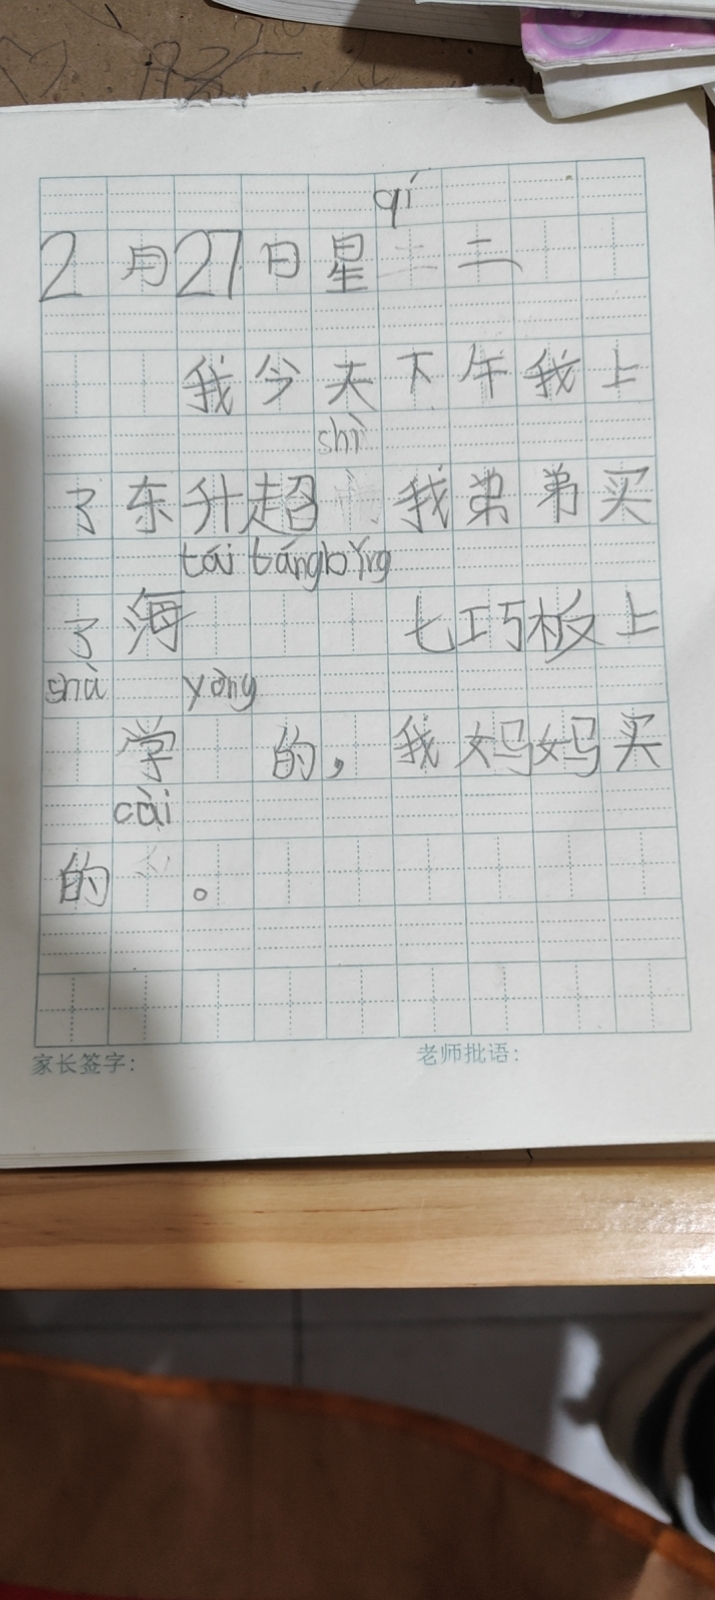 qí
2月27日星 二
我今天下午我上
shì
了东升超 我弟弟买
tái tángbǐng
了海 七巧板上
shù yòng
学 的，我妈妈买
cài
的 。
家长签字： 老师批语：